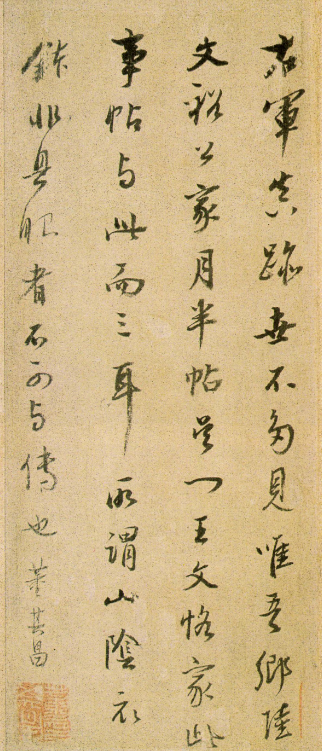 右軍真跡世不多見唯吾鄉陸
文裕公家月半帖吴門王文恪家此
事帖与此而三耳所謂山陰衣
鉢非具眼者不可与傳也董其昌